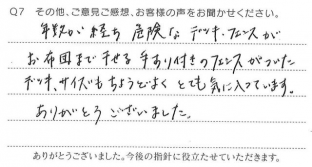 Q7 その他、ご意見ご感想、お客様の声をお聞かせください。
年数が経ち 危険な デッキ.フェンスが
お布団まで干せる 手すり付きのフェンスがついた
デッキ、サイズもちょうどよく とても気に入っています。
ありがとう ございました。
ありがとうございました。今後の指針に役立たせていただきます。